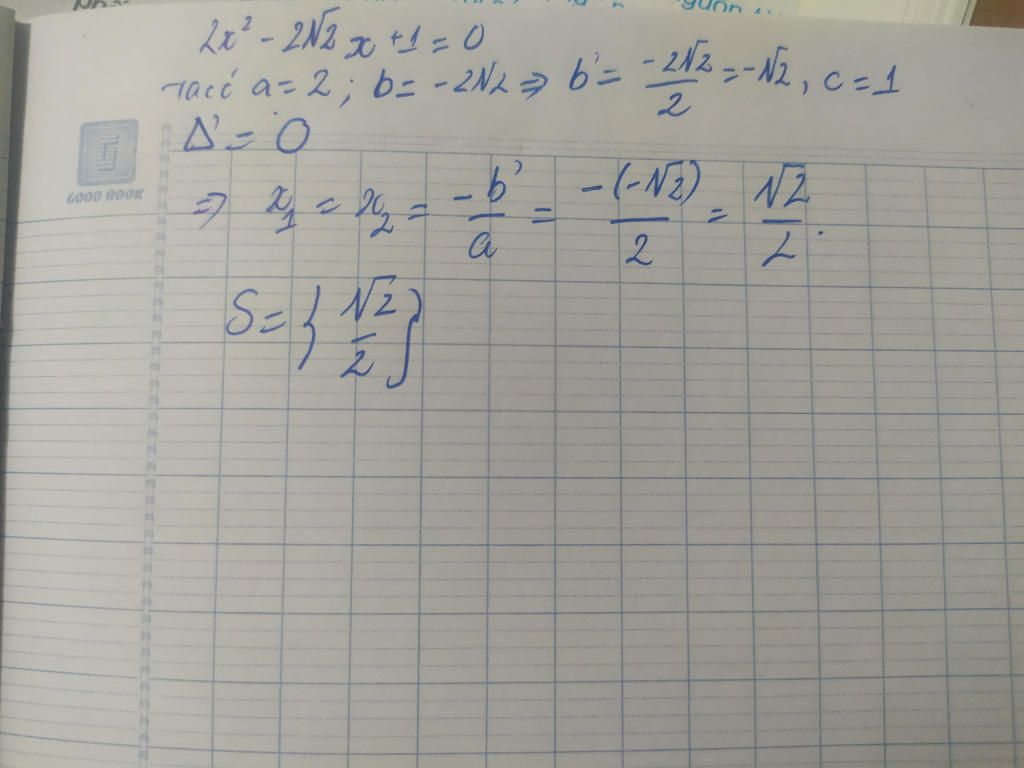 2x² - 2√2 x + 1 = 0
a = 2 ; b = -2√2 => b' = -2√2/2 = -√2, c = 1
Δ' = 0
GOOD BOOK
=> x₁ = x₂ = -b'/a = -(-√2)/2 = √2/2.
S = {√2/2}